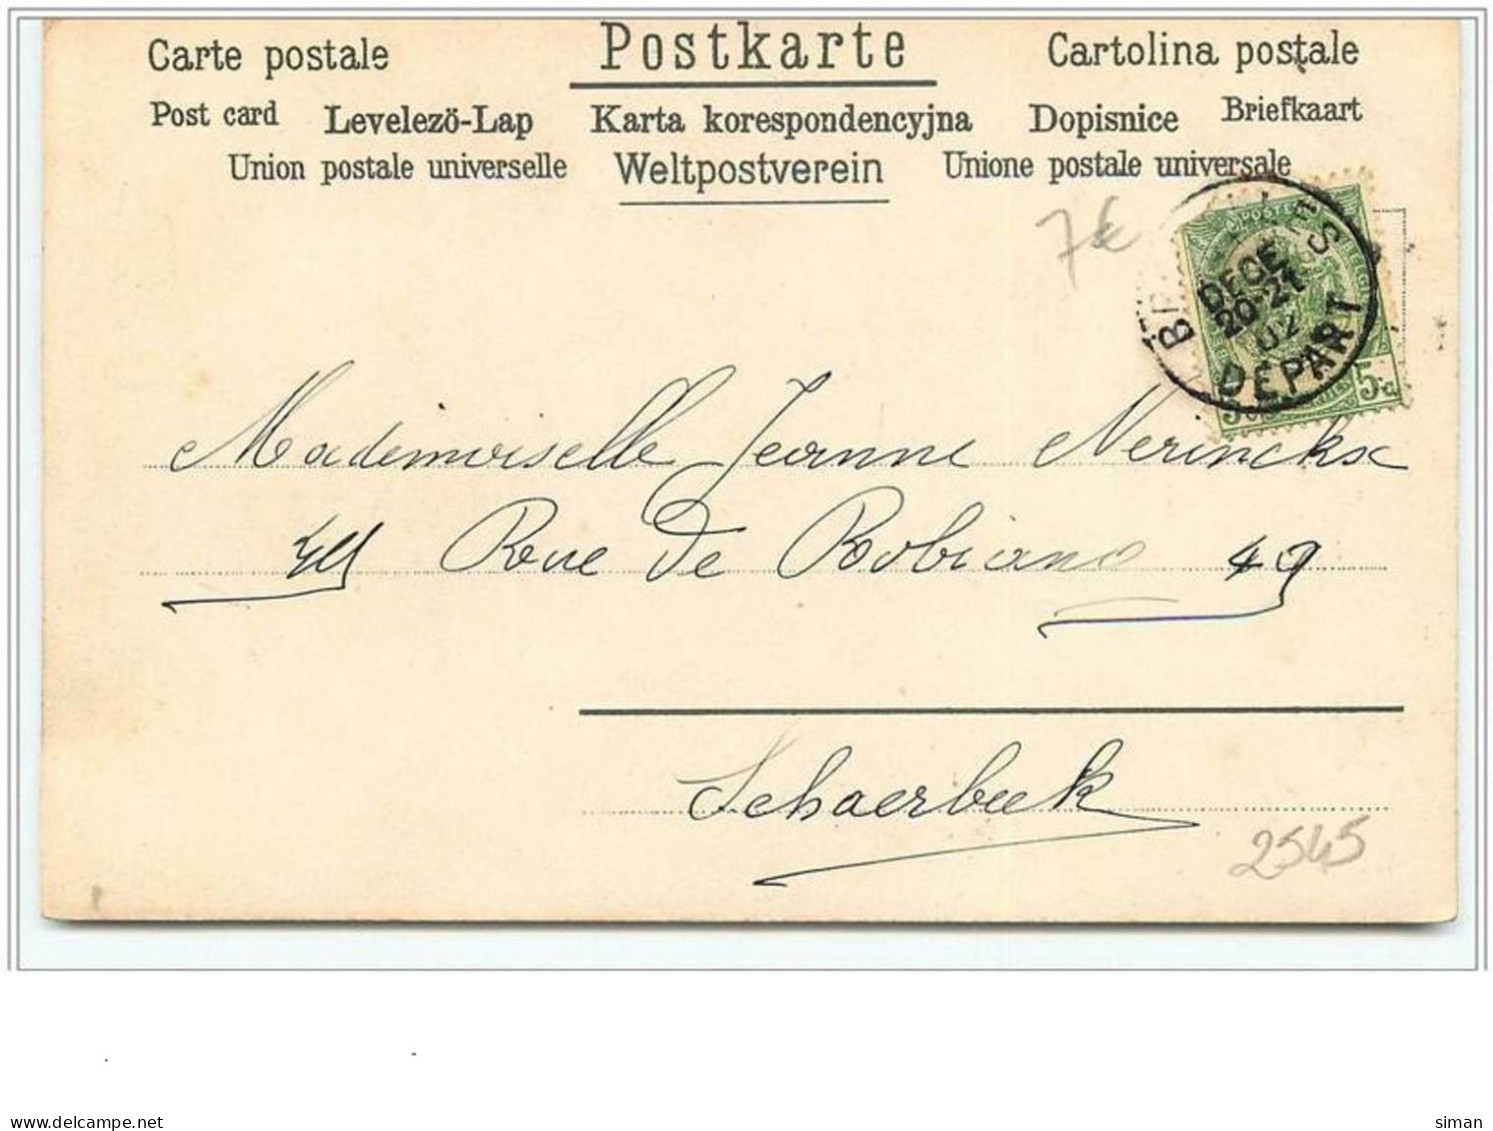 Carte postale Postkarte Cartolina postale
Post card Levelezö-Lap Karta korespondencyjna Dopisnice Briefkaart
Union postale universelle Weltpostverein Unione postale universale
7€
POSTES
DECE
20-21
02
DÉPART
5 c
Mademoiselle Jeanne Nerinckx
49 Rue de Robiano 49
Schaerbeek
2545
siman